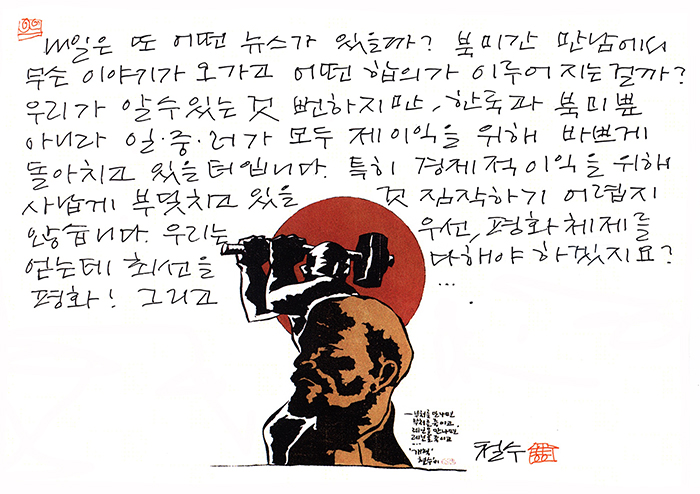 내일은 또 어떤 뉴스가 있을까? 북미간 만남에서
무슨 이야기가 오가고 어떤 합의가 이루어지는걸까?
우리가 알 수 있는 것 뻔하지만, 한국과 북미뿐
아니라 일·중·러가 모두 제 이익을 위해 바쁘게
돌아치고 있을 터입니다. 특히 경제적 이익을 위해
사납게 부딪치고 있을 것 짐작하기 어렵지
않습니다. 우리는 우선, 평화체제를
얻는데 최선을 다해야 하겠지요?
평화! 그리고 ... .
부처를 만나면
부처를 죽이고
레닌을 만나면
레닌을 죽이고
...
'개벽'
철수'91
철수